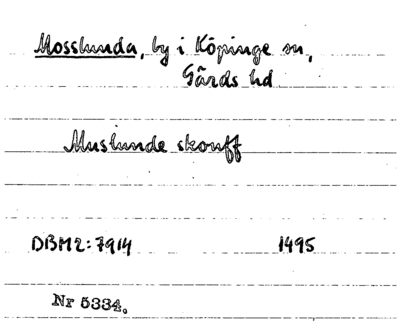 Mosslunda, by i Köpinge sn,
Gärds hd
Muslunde skouff
DBM2:7914 1495
Nr 5334.